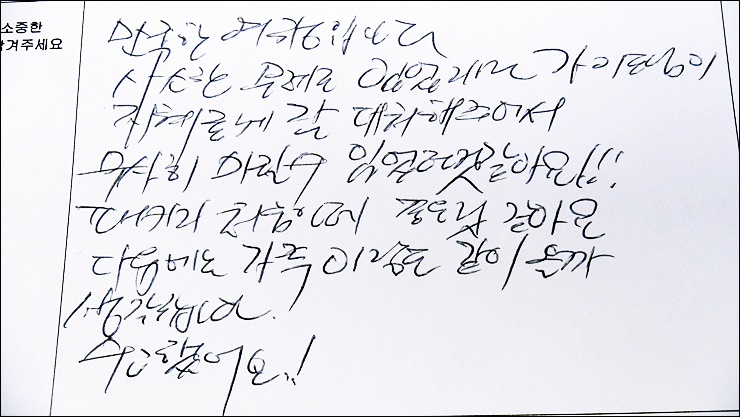 소중한
남겨주세요
만족한 여행입니다
사소한 문제도 있었는데 가이드님이
지혜롭게 잘 대처해주어서
무사히 마칠수 있었던것같아요!!
패키지 처음인데 좋은것 같아요
다음에도 가족이랑도 같이 올까
생각합니다.
수고했어요!!